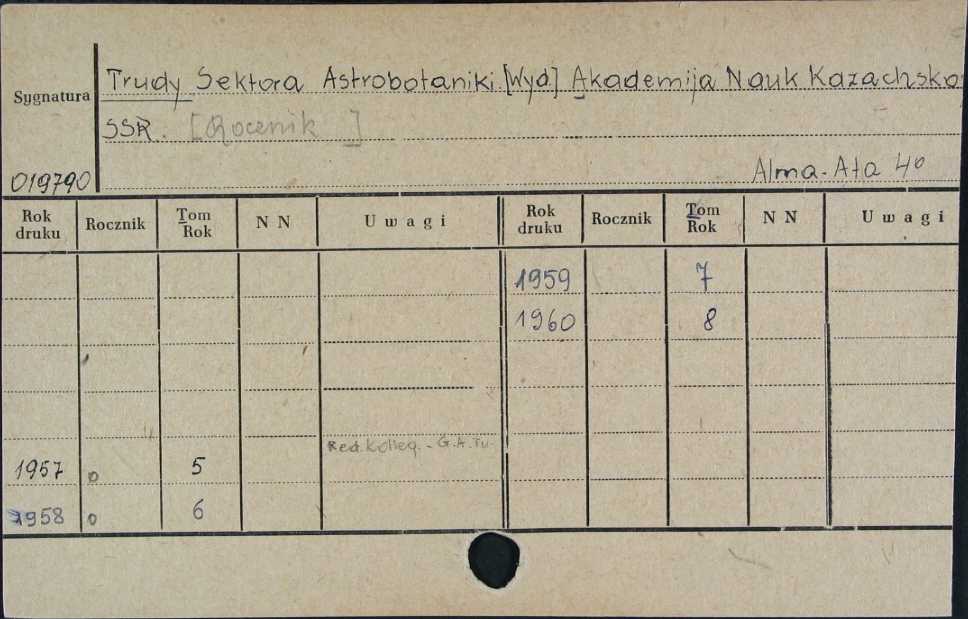 Trudy Sektora Astrobotaniki. [Wyd.] Akademija Nauk Kazachsko
Sygnatura
SSR. [Rocznik ]
019790
Alma-Ata 4°
Rok druku Rocznik Tom Rok N N Uwagi Rok druku Rocznik Tom Rok N N Uwagi
1959 7
1960 8
Red. Kolleg. - G.A. Tu-
1957 0 5
1958 0 6